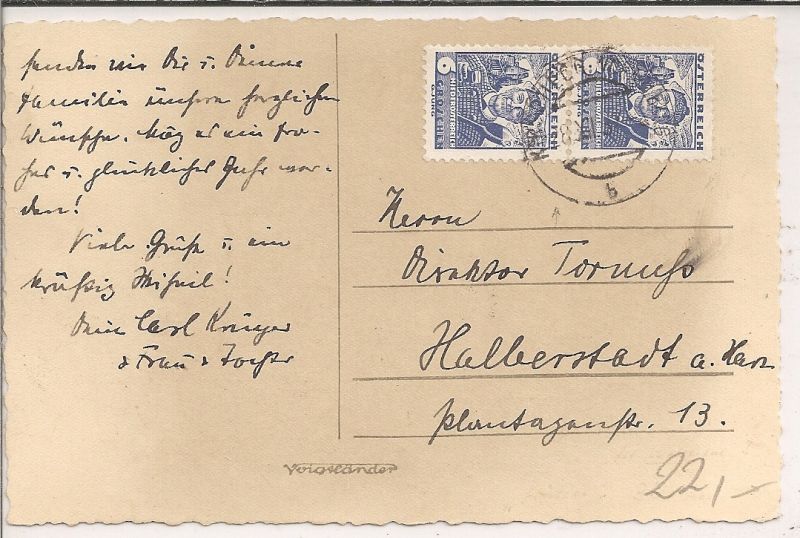 senden wir Dir u. Deiner
Familie unsere herzlichen
Wünsche. Mög es ein fro-
hes u. glückliches Jahr wer-
den!
Viele Grüße u. ein
kräftig Skiheil!
Dein Carl Krüger
& Frau & Tochter
ÖSTERREICH
ÖSTERREICH
Herrn
Direktor Tornuss
Halberstadt a. Harz
Plantagenstr. 13.
Voigtländer
22,-